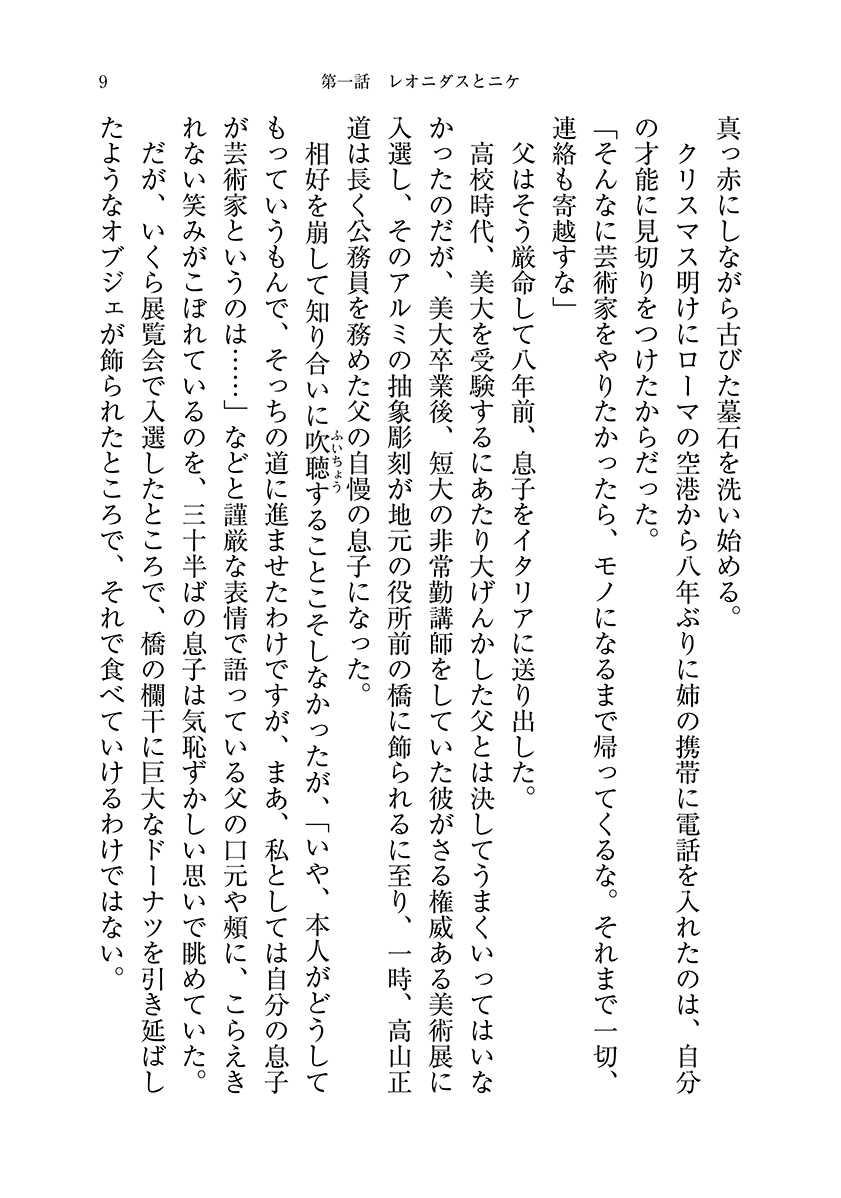 9
第一話　レオニダスとニケ
真っ赤にしながら古びた墓石を洗い始める。
　クリスマス明けにローマの空港から八年ぶりに姉の携帯に電話を入れたのは、自分
の才能に見切りをつけたからだった。
「そんなに芸術家をやりたかったら、モノになるまで帰ってくるな。それまで一切、
連絡も寄越すな」
　父はそう厳命して八年前、息子をイタリアに送り出した。
　高校時代、美大を受験するにあたり大げんかした父とは決してうまくいってはいな
かったのだが、美大卒業後、短大の非常勤講師をしていた彼がさる権威ある美術展に
入選し、そのアルミの抽象彫刻が地元の役所前の橋に飾られるに至り、一時、高山正
道は長く公務員を務めた父の自慢の息子になった。
　相好を崩して知り合いに吹聴することこそしなかったが、「いや、本人がどうして
ふいちょう
もっていうもんで、そっちの道に進ませたわけですが、まあ、私としては自分の息子
が芸術家というのは……」などと謹厳な表情で語っている父の口元や頰に、こらえき
れない笑みがこぼれているのを、三十半ばの息子は気恥ずかしい思いで眺めていた。
　だが、いくら展覧会で入選したところで、橋の欄干に巨大なドーナツを引き延ばし
たようなオブジェが飾られたところで、それで食べていけるわけではない。